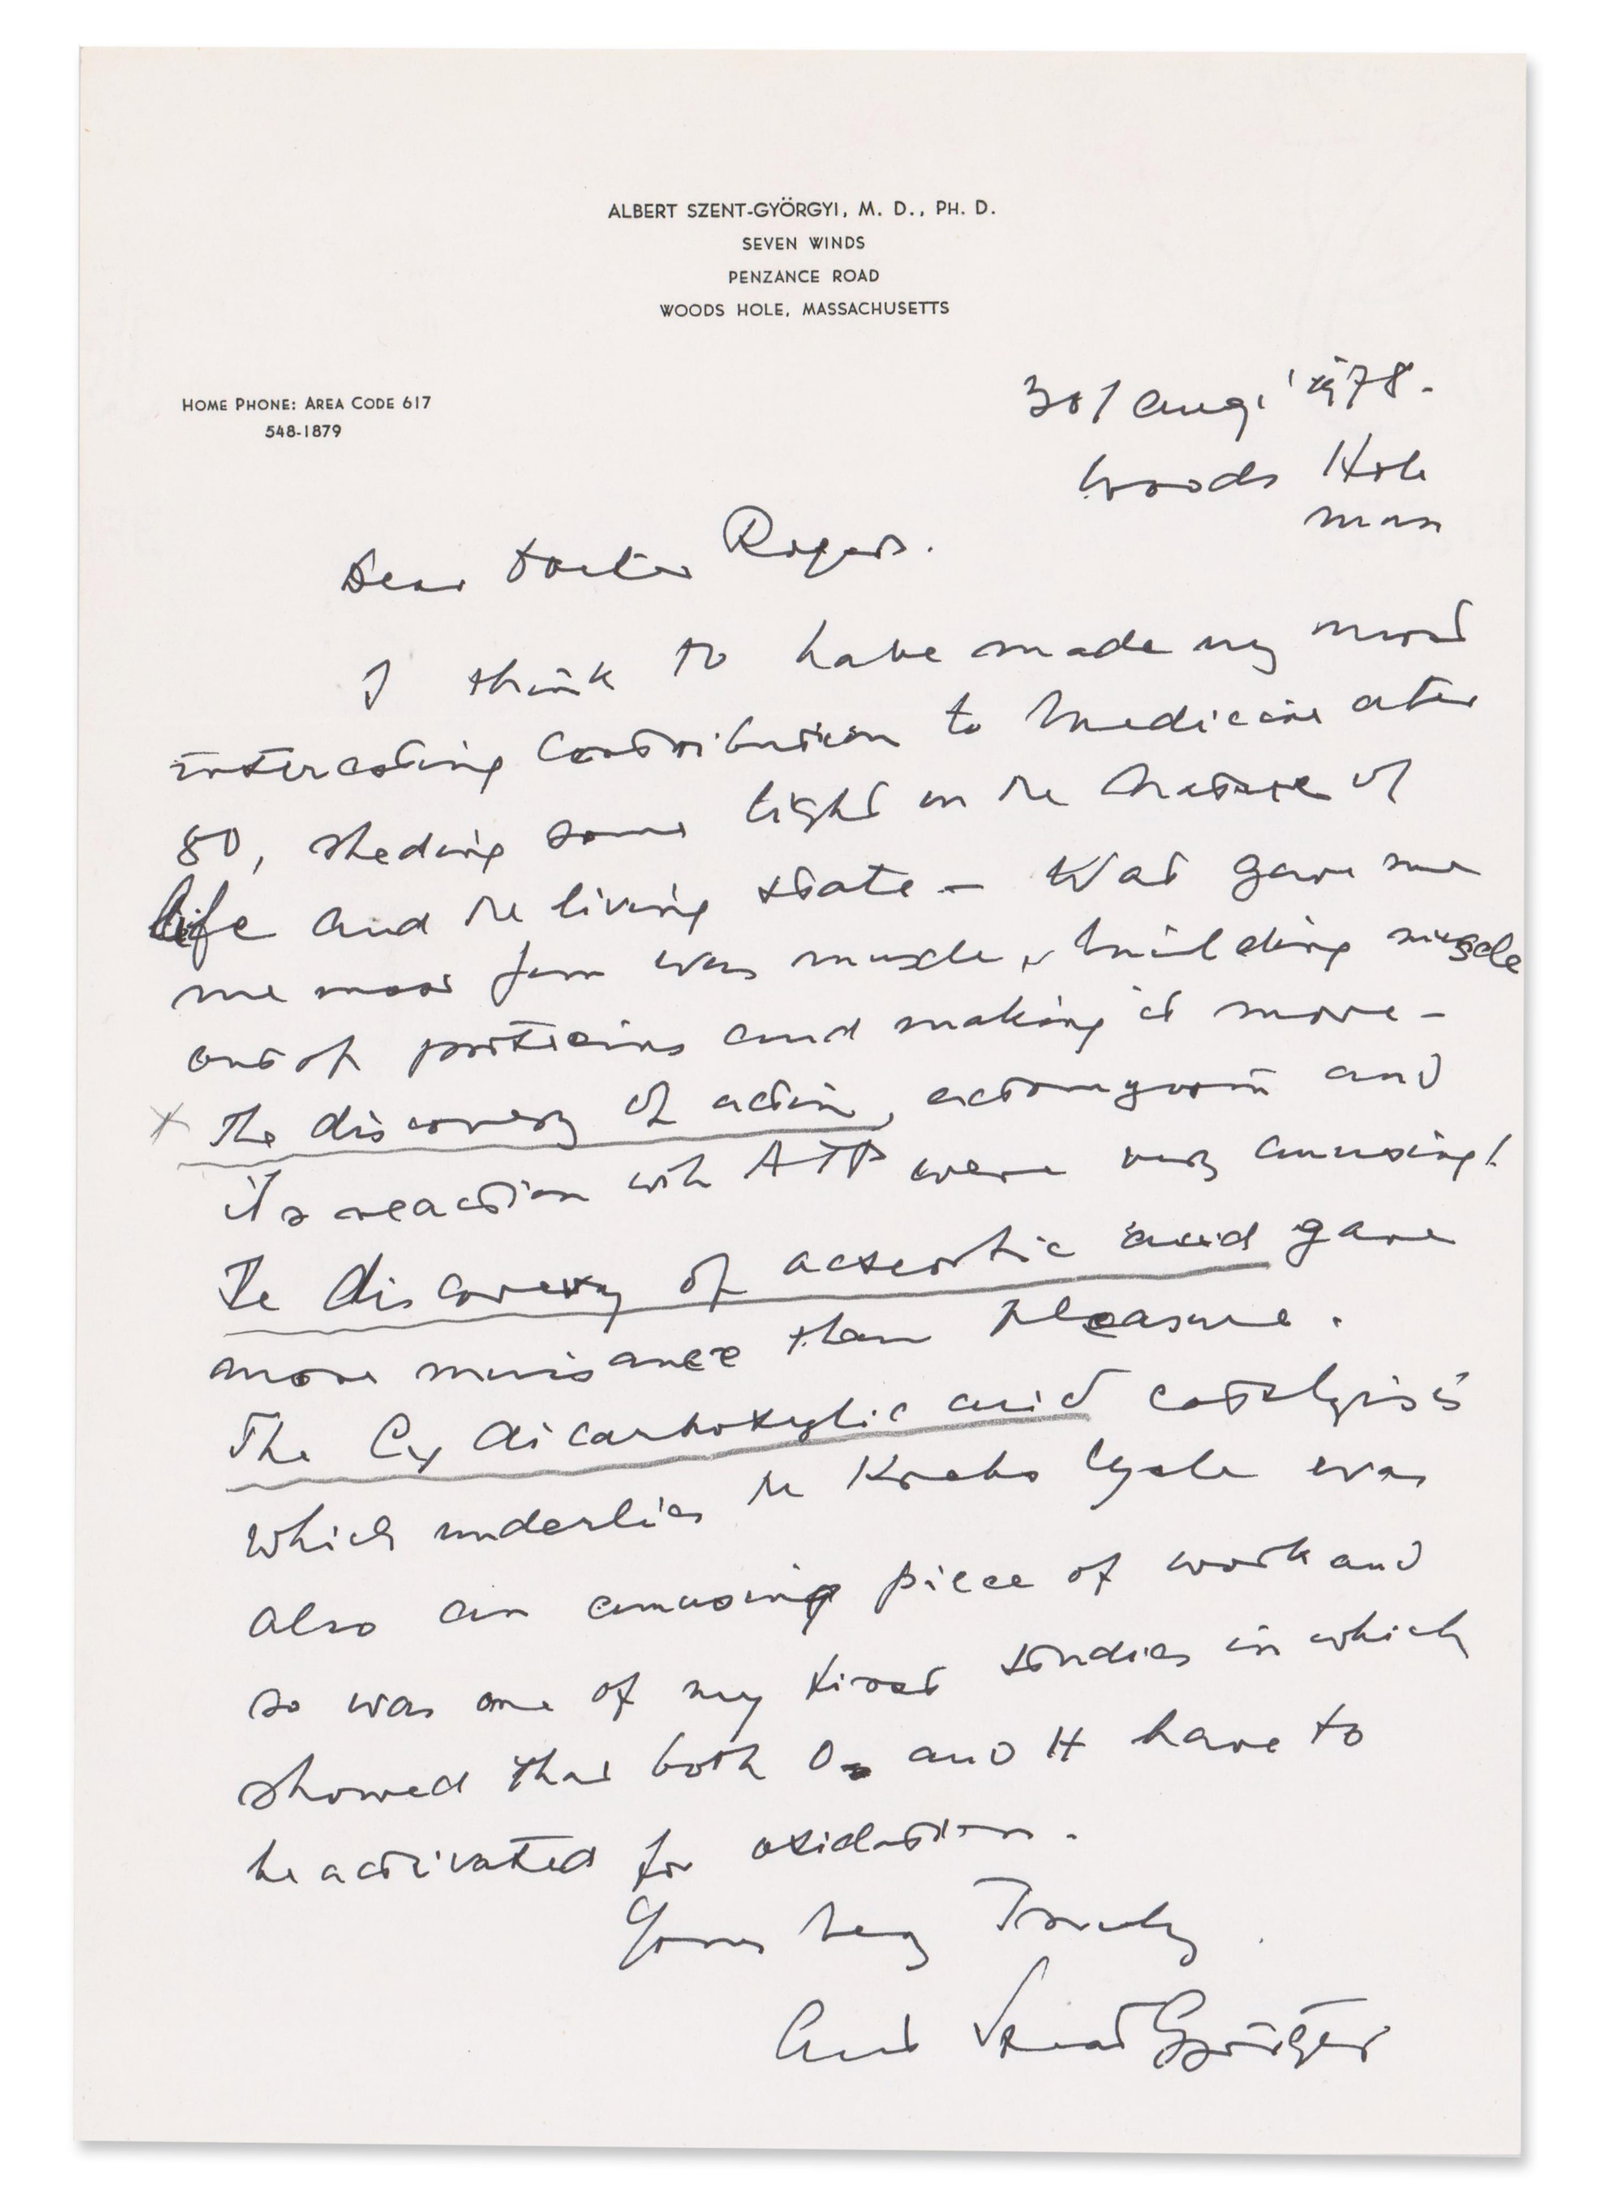 ALBERT SZENT-GYÖRGYI, M. D., PH. D.
SEVEN WINDS
PENZANCE ROAD
WOODS HOLE, MASSACHUSETTS
HOME PHONE: AREA CODE 617
548-1879
30/ Aug. 1978.
Woods Hole
Mass
Dear Doctor Rogers.
I think to have made my most
interesting contribution to Medicine after
80, sheding some light on the nature of
life and the living state - Wat gave me
me most fun was muscle, building muscle
out of proteins and making it move -
x The discovery of actin, actomyosin and
its reaction with ATP were very amusing!
The discovery of ascorbic acid gave
more nuisance than pleasure.
The C4 dicarboxylic acid catalysis
which underlies the Krebs Cycle was
also an amusing piece of work and
so was one of my first studies in which
showed that both O2 and H have to
be activated for oxidation.
Yours very Truly
Szent-Györgyi